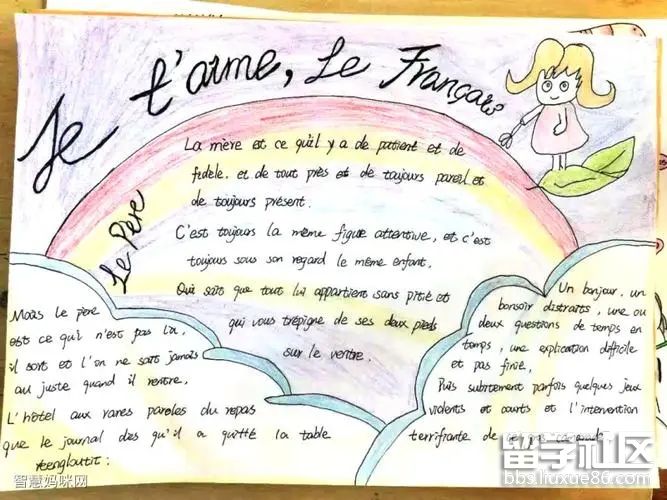 Je t'aime, Le Français
Le Père
La mère est ce qu'il y a de patient et de
fidèle, et de tout près et de toujours pareil et
de toujours présent.
C'est toujours la même figure attentive, et c'est
toujours sous son regard le même enfant,
Qui sait que tout lui appartient sans pitié et
qui vous trépigne de ses deux pieds
sur le ventre.
Mais le père
est ce qui n'est pas là,
il sort et l'on ne sait jamais
au juste quand il rentre,
L'hôtel aux rares paroles du repas
que le journal dès qu'il a quitté la table
réengloutit:
Un bonjour, un
bonsoir distraits, une ou
deux questions de temps en
temps, une explication difficile
et pas finie,
Puis subitement parfois quelques jeux
violents et courts et l'intervention
terrifiante de
智慧妈咪网
留学社区
bbs.liuxue86.com